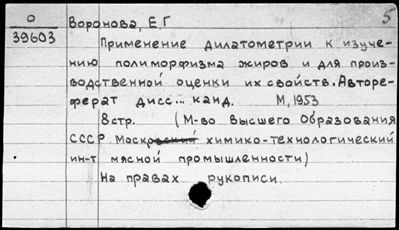 О
39603
5
Воронова, Е.Г
Применение дилатометрии к изуче-
нию полиморфизма жиров и для произ-
водственной оценки их свойств. Авторе-
ферат дисс... канд. М, 1953
8 стр. (М-во Высшего Образования
СССР Московский химико-технологический
ин-т мясной промышленности)
На правах рукописи.